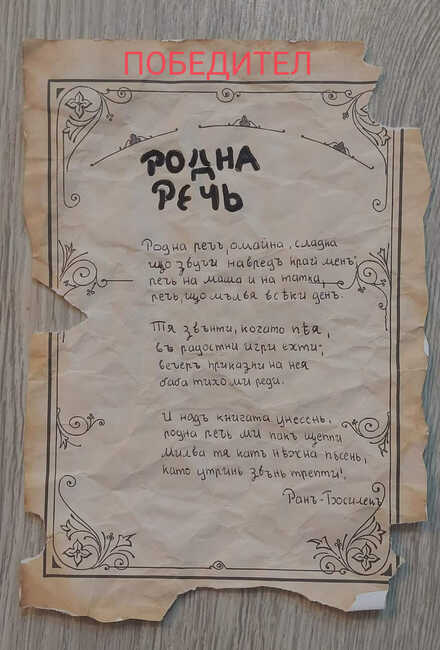 ПОБЕДИТЕЛ
РОДНА
РЕЧЬ
Родна речъ, омайна, сладка
що звучи навредъ край менъ,
речь на мама и на татка,
речь, що мълвя всѣки денъ.
Тя звънти, когато пѣя,
въ радостни игри ехти,
вечеръ приказки на нея
баба тихо ми реди.
И надъ книгата унесенъ,
родна речь ми пакъ шепти
милва тя катъ нѣжна пѣсень,
като утринь звънъ трепти!
Ранъ-Босилекъ